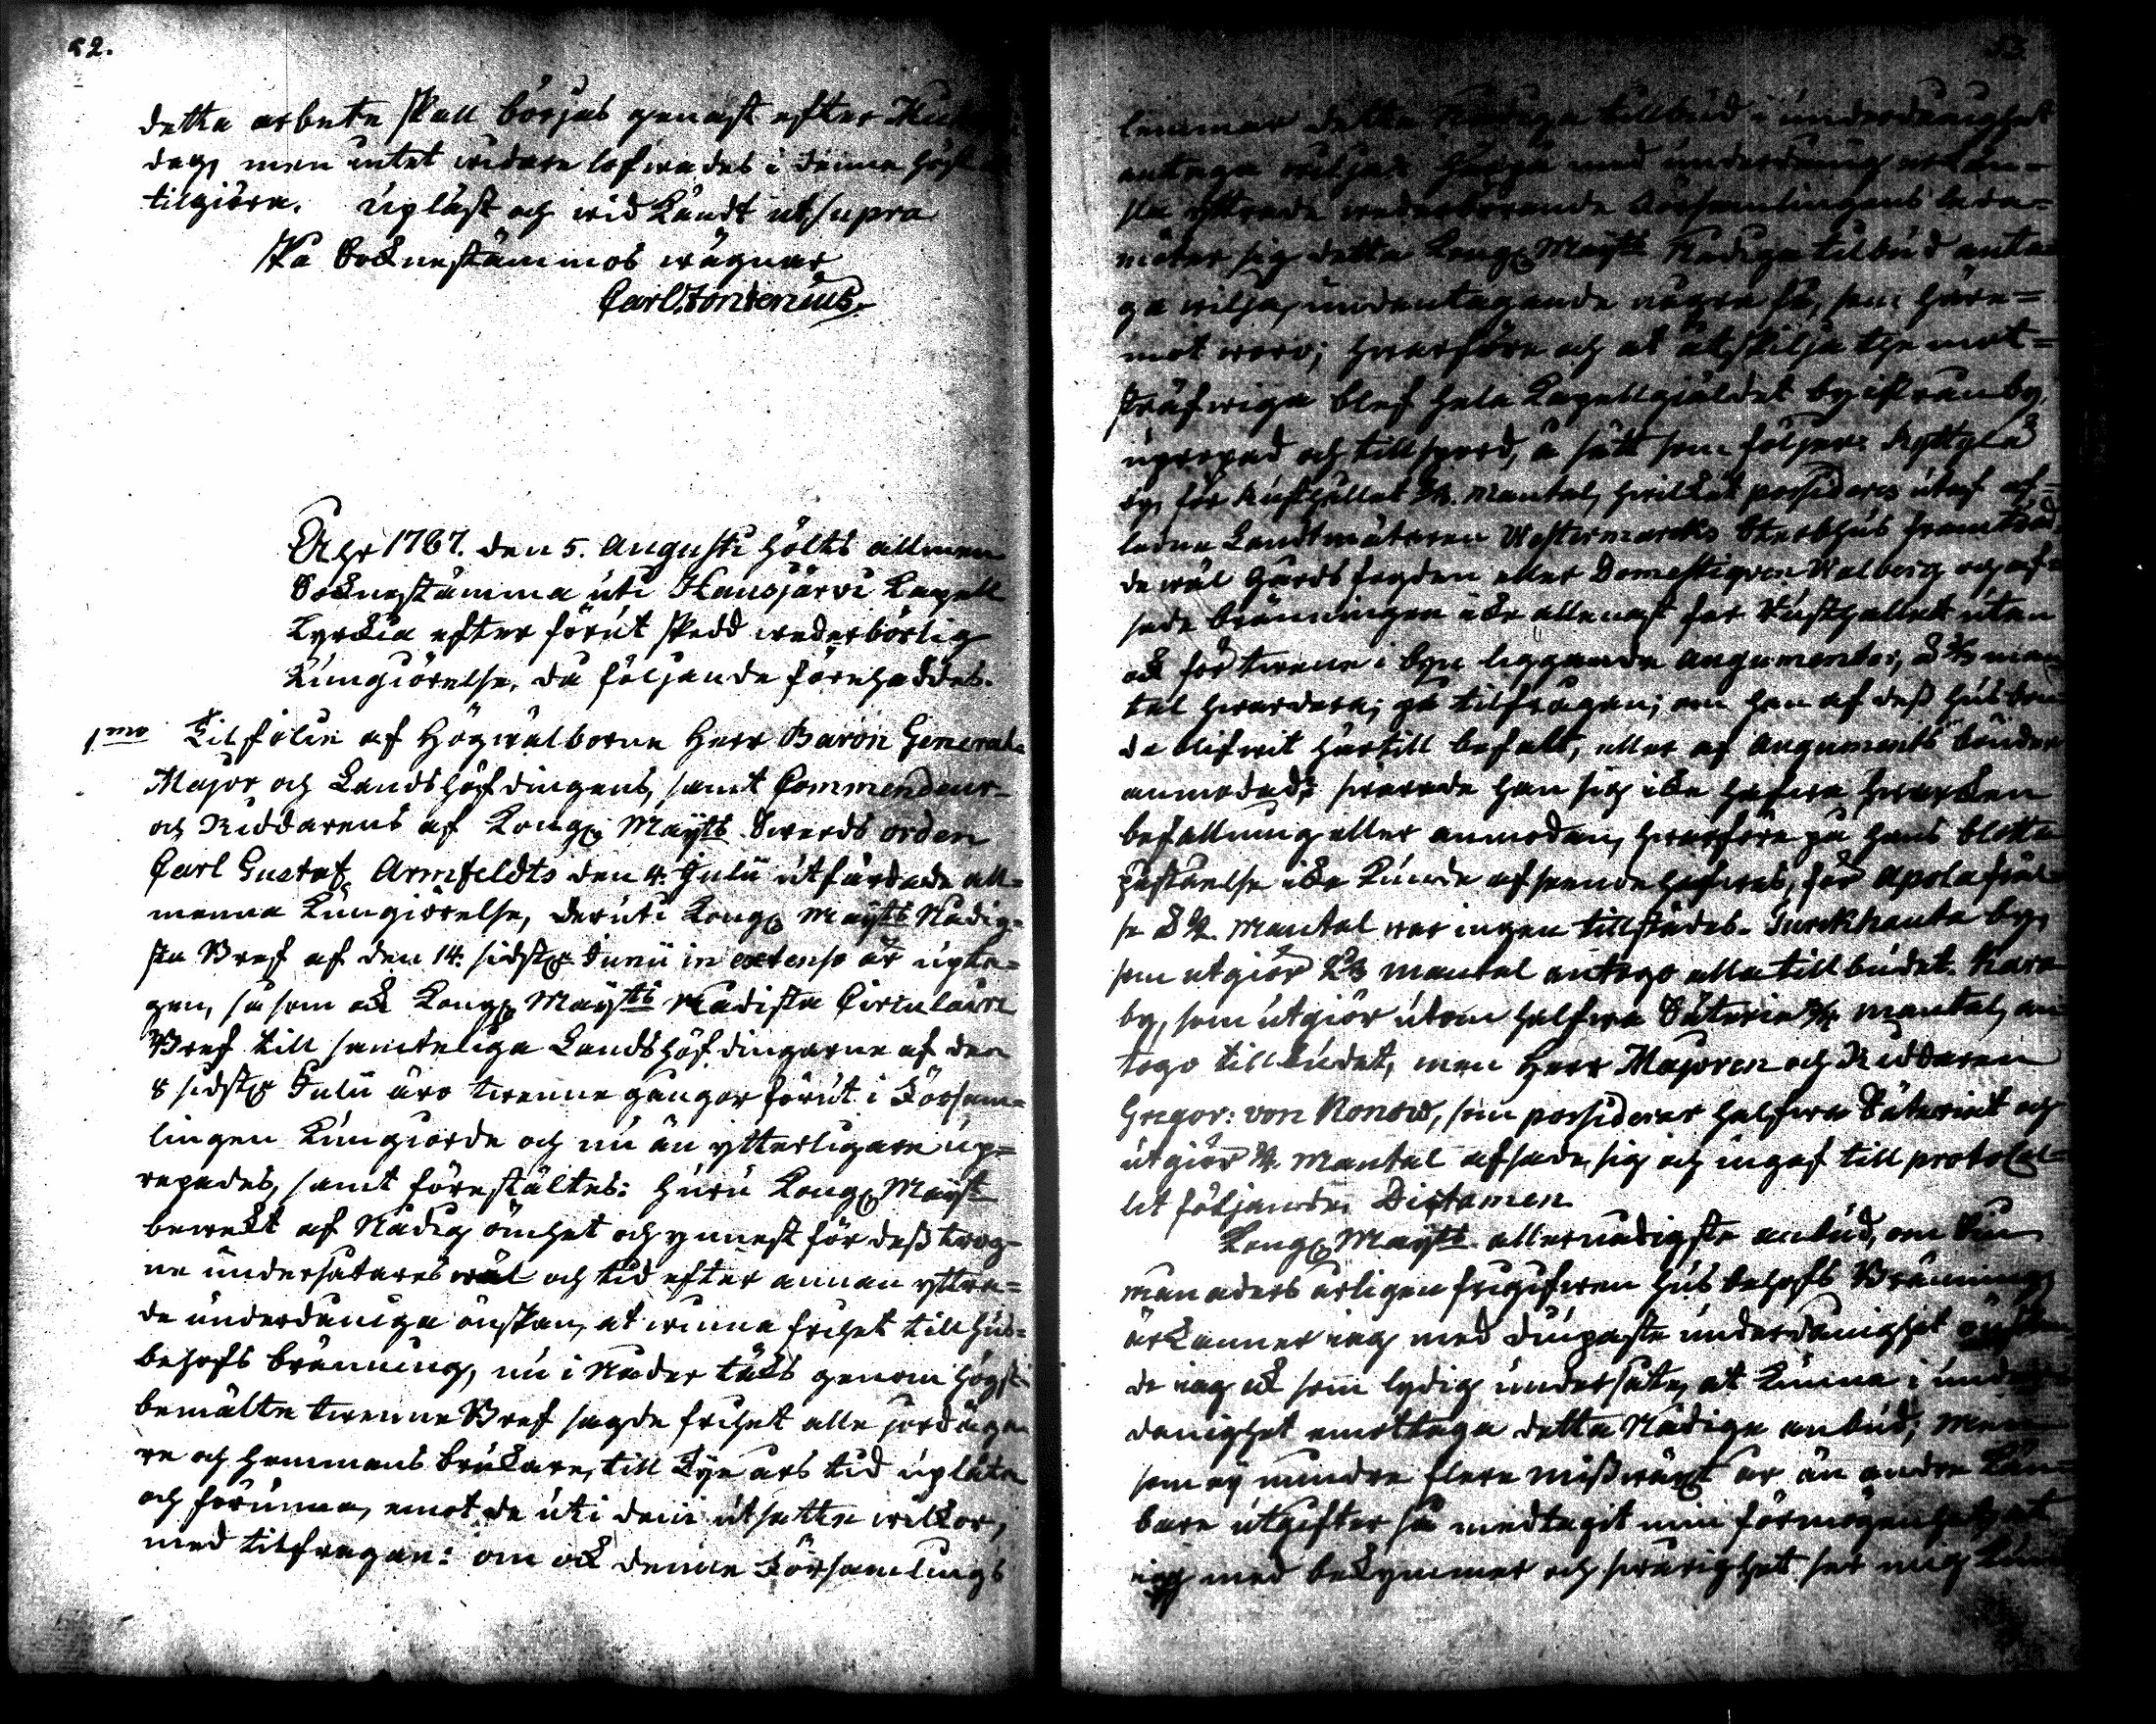 52.
detta arbete skall börjas genast efter
dag, men intet widare lofwades i denna höst
tilgiöra. Upläst och wid kändt ut supra
På Socknestämmos wägnar
Carl Fonsenius
Åhr 1787. den 5. Augusti hölts allmen
Socknestämma uti Kansjärvi Capell
Kyrkia efter förut skedd wederbörlig
Kungiörelse, då följande förehaddes.
1mo Til följe af Högwälborne Herr Baron General
Major och Landshöfdingens, samt Commendeur
och Riddarens af Kongl. Mayts Swerds orden
Carl Gustaf Armfeldts den 4. Julii utfärdade all=
menna Kungiörelse, deruti Kongl. Mayts Nådig=
sta Bref af den 14. sidstl. Junii in extenso är upta=
gen, så som ock Kongl. Mayts Nådista Circulaire
Bref till samteliga Landshöfdingarne af den
8 sidstl. Julii äro twenne gånger förut i Försam=
lingen kungiorde och nu än ytterligare up=
repades, samt förestältes: huru Kongl. Mayt
bewekt af Nådig ömhet och ynnest för dess trog=
ne undersåtares wäl och tid efter annan yttra=
de underdåniga önskan, at winna frihet till hus=
behofs bränning, nu i Nåder täks genom högst
bemälte twenne Bref sagde frihet alle jordägan
re och hemmans brukare, till Tije års tid uplåta
och förunna, emot de uti dem utsatte wilkor,
med tilfrågan: om ock denne Församlings
53.
lemmar detta Nådiga tillbud i underdånighet
antaga wilja. Härpå med underdånig
sla yttrade wederbörande Församlingens leda=
möter sig detta Kongl. Mayts Nådiga tilbud anta
ga wilja, undantagande några få, som häre=
mot woro; hwarföre och at åtskilja the mot=
sträfwiga blef hela Capellgiäldet by ifrån by
upropad och tillspord, å sätt som följer:
by, för Rusthållet mantal, hwilket possideras utaf af=
ledne Landtmätaren Westermarcks Sterbhus framträd
de wäl Gårdsfogden eller Domestiquen Walberg och af=
sade bränningen icke allenast för Rusthållet utan
ock för twenne i byn liggande Augmenter, man
tal hwardera; på tilfrågan; om han af dess husbon
de blifwit härtill befalt, eller af Augments bönder
anmodad, swarade han sig icke hafwa hwarken
befallning eller anmodan, hwarföre på hans blotta
påståelse icke kunde afseende hafwas, för Apola fräl
se mantal war ingen tillstädes. Turckhauta by,
som utgiör mantal antogo alla tillbudet. Kara
by, som utgiör utom halfwa Säterie mantal, an
togo tillbudet, men Herr Majoren och Riddaren
Gregor: von Konow, som possiderar halfwa Säteriet och
utgiör mantal afsade sig och ingaf till protocol=
let följande Dictamen
Kongl. Mayts allernådigste anbud, om
månaders årligen frigifwen husbehofs Bränning
ärkänner iag med diupaste underdånighet
de iag ock som lydig undersåte, at kunna i under
dånighet emottaga detta Nådige anbud; Men
som ej mindre flere misswäxt år än andre kän=
bare utgifter så medtagit min förmögenhet, at
iag med bekymmer och swårighet ser mig kunna